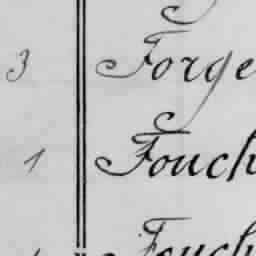 3 Forge
1 Fouch
Fouch